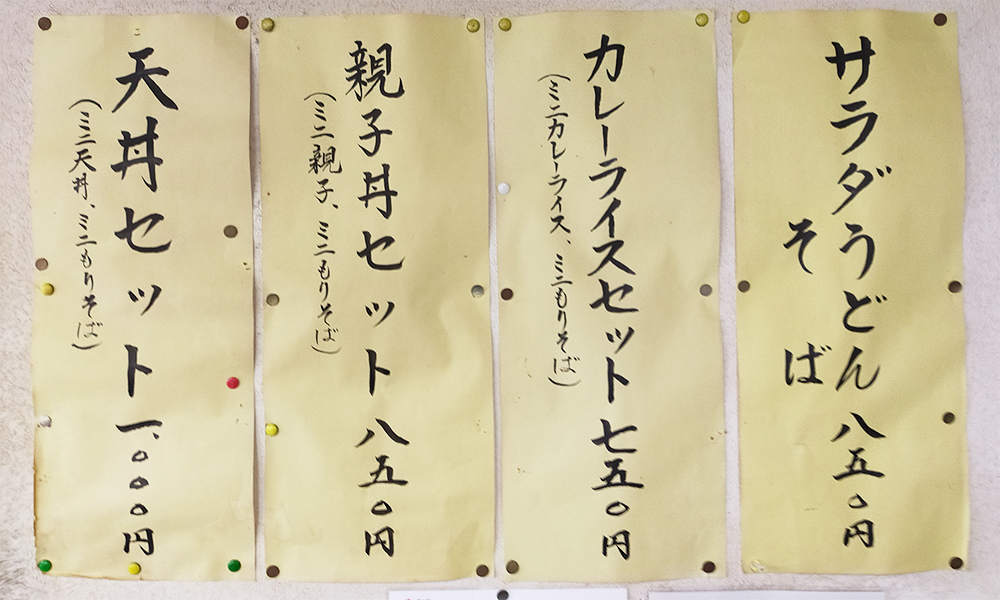 サラダうどん 八五〇円
そば
カレーライスセット 七五〇円
(ミニカレーライス、ミニもりそば)
親子丼セット 八五〇円
(ミニ親子、ミニもりそば)
天丼セット 一、〇〇〇円
(ミニ天丼、ミニもりそば)